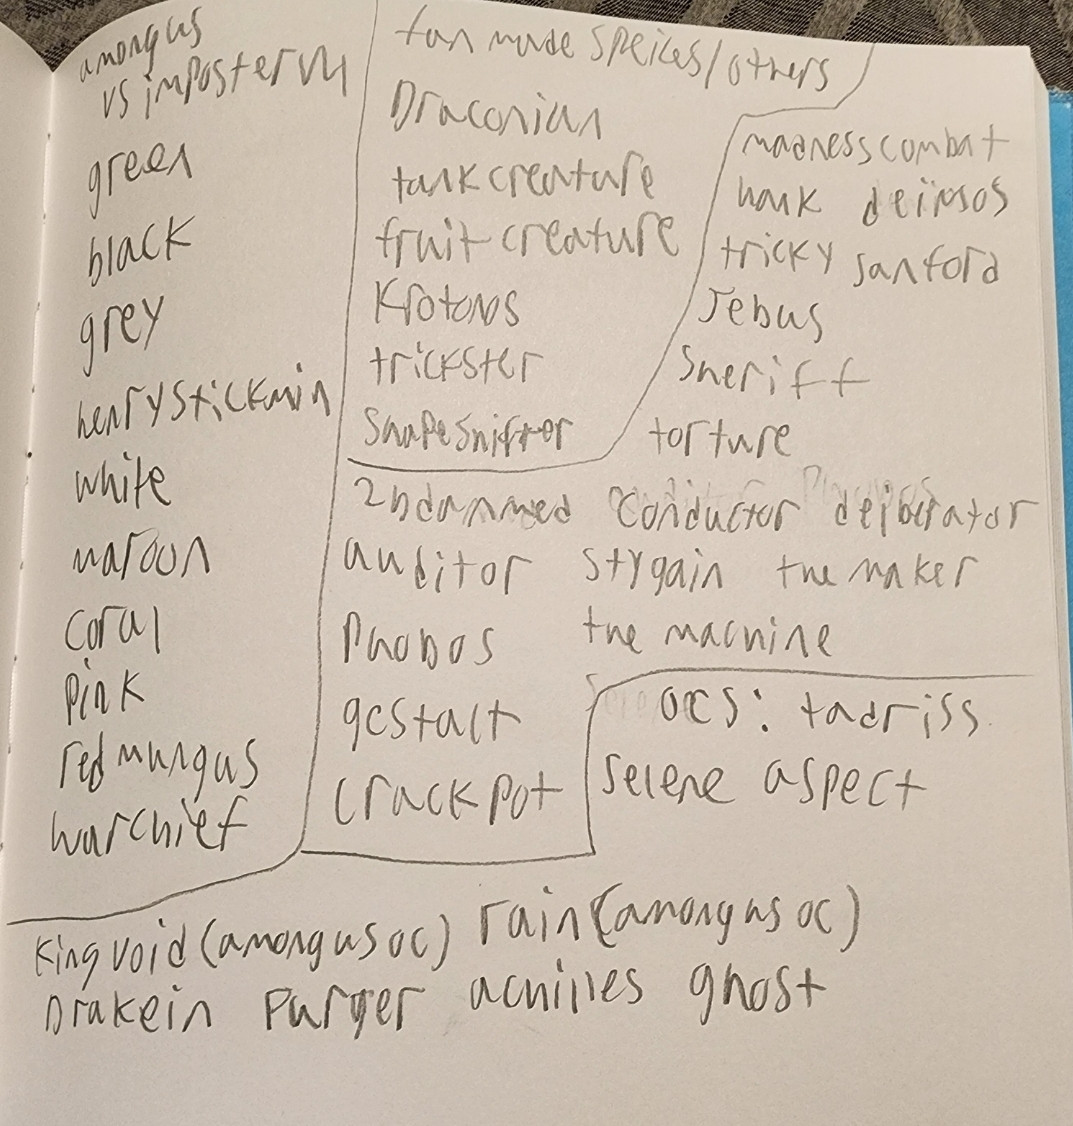 amongus
vs imposter v4
green
black
grey
henry stickmin
white
maroon
coral
pink
red mungus
warchief
fan made speices/others
Draconian
tank creature
fruit creature
Krotonos
trickster
Shapeshifter
madness combat
hank deimos
tricky sanford
Jebus
Sheriff
torture
2bdammed conductor deiberator
auditor stygain the maker
Phobos the machine
gestalt
crackpot
ocs: tadriss
Selene aspect
King void (amongus oc) rain (amongus oc)
Drakein Purger achilles ghost